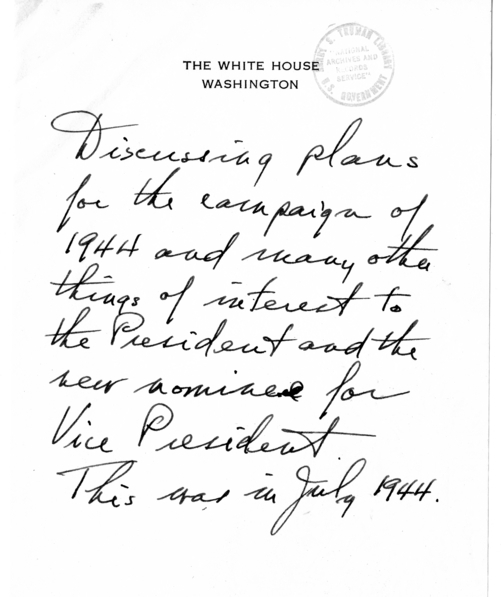 THE WHITE HOUSE
WASHINGTON
HARRY S. TRUMAN LIBRARY
NATIONAL
ARCHIVES AND
RECORDS
SERVICE
U.S. GOVERNMENT
Discussing plans
for the campaign of
1944 and many other
things of interest to
the President and the
new nominee for
Vice President
This was in July 1944.